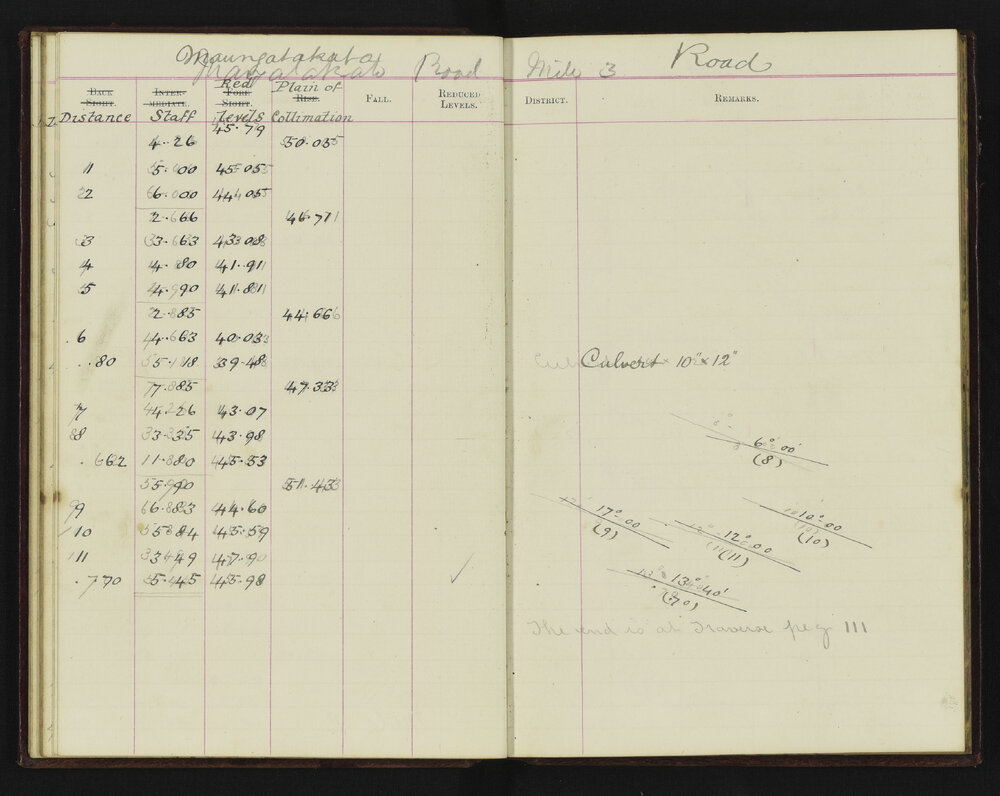 Maungatakata Road Mile 3 Road
BACK SIGHT. INTER-MEDIATE. FORE SIGHT. RISE. FALL. REDUCED LEVELS. DISTRICT. REMARKS.
Distance Staff Red Levels Plain of Collimation
45.79
4.26 50.05
1 5.00 45.05
2 6.00 44.05
2.66 46.71
3 3.63 43.08
4 4.80 41.91
5 4.90 41.81
2.85 44.66
6 4.63 40.03
.80 5.18 39.48 Culvert 10" x 12"
7.85 47.33
7 4.26 43.07
8 3.35 43.98 6° 00' (8)
.62 1.80 45.53
5.90 51.43
9 6.83 44.60 17° 00 (9) 10° 00 (10)
10 5.84 45.59 12° 00 (11)
11 3.49 47.90
.70 5.45 45.98 13° 40' (.70)
The end is at Traverse peg 111